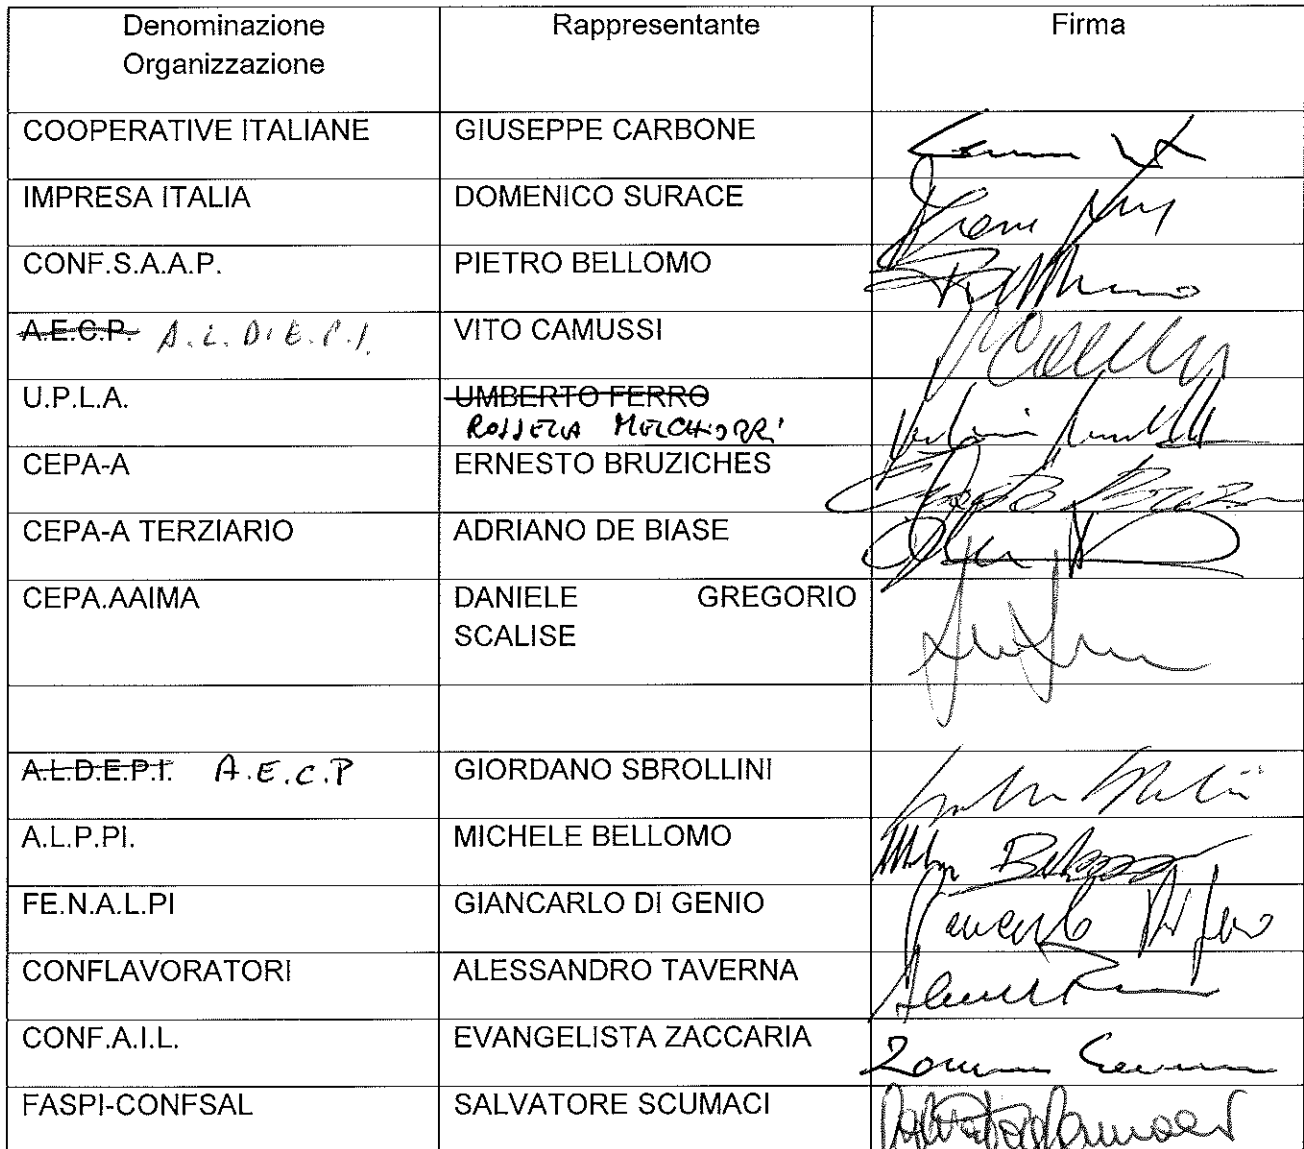 Denominazione Rappresentante Firma
Organizzazione
COOPERATIVE ITALIANE GIUSEPPE CARBONE
IMPRESA ITALIA DOMENICO SURACE
CONF.S.A.A.P. PIETRO BELLOMO
A.E.C.P. A.L.D.E.P.I. VITO CAMUSSI
U.P.L.A. UMBERTO FERRO
ROSSELLA MELCHIORRI
CEPA-A ERNESTO BRUZICHES
CEPA-A TERZIARIO ADRIANO DE BIASE
CEPA.AAIMA DANIELE GREGORIO
SCALISE
A.L.D.E.P.I. A.E.C.P GIORDANO SBROLLINI
A.L.P.PI. MICHELE BELLOMO
FE.N.A.L.PI GIANCARLO DI GENIO
CONFLAVORATORI ALESSANDRO TAVERNA
CONF.A.I.L. EVANGELISTA ZACCARIA
FASPI-CONFSAL SALVATORE SCUMACI